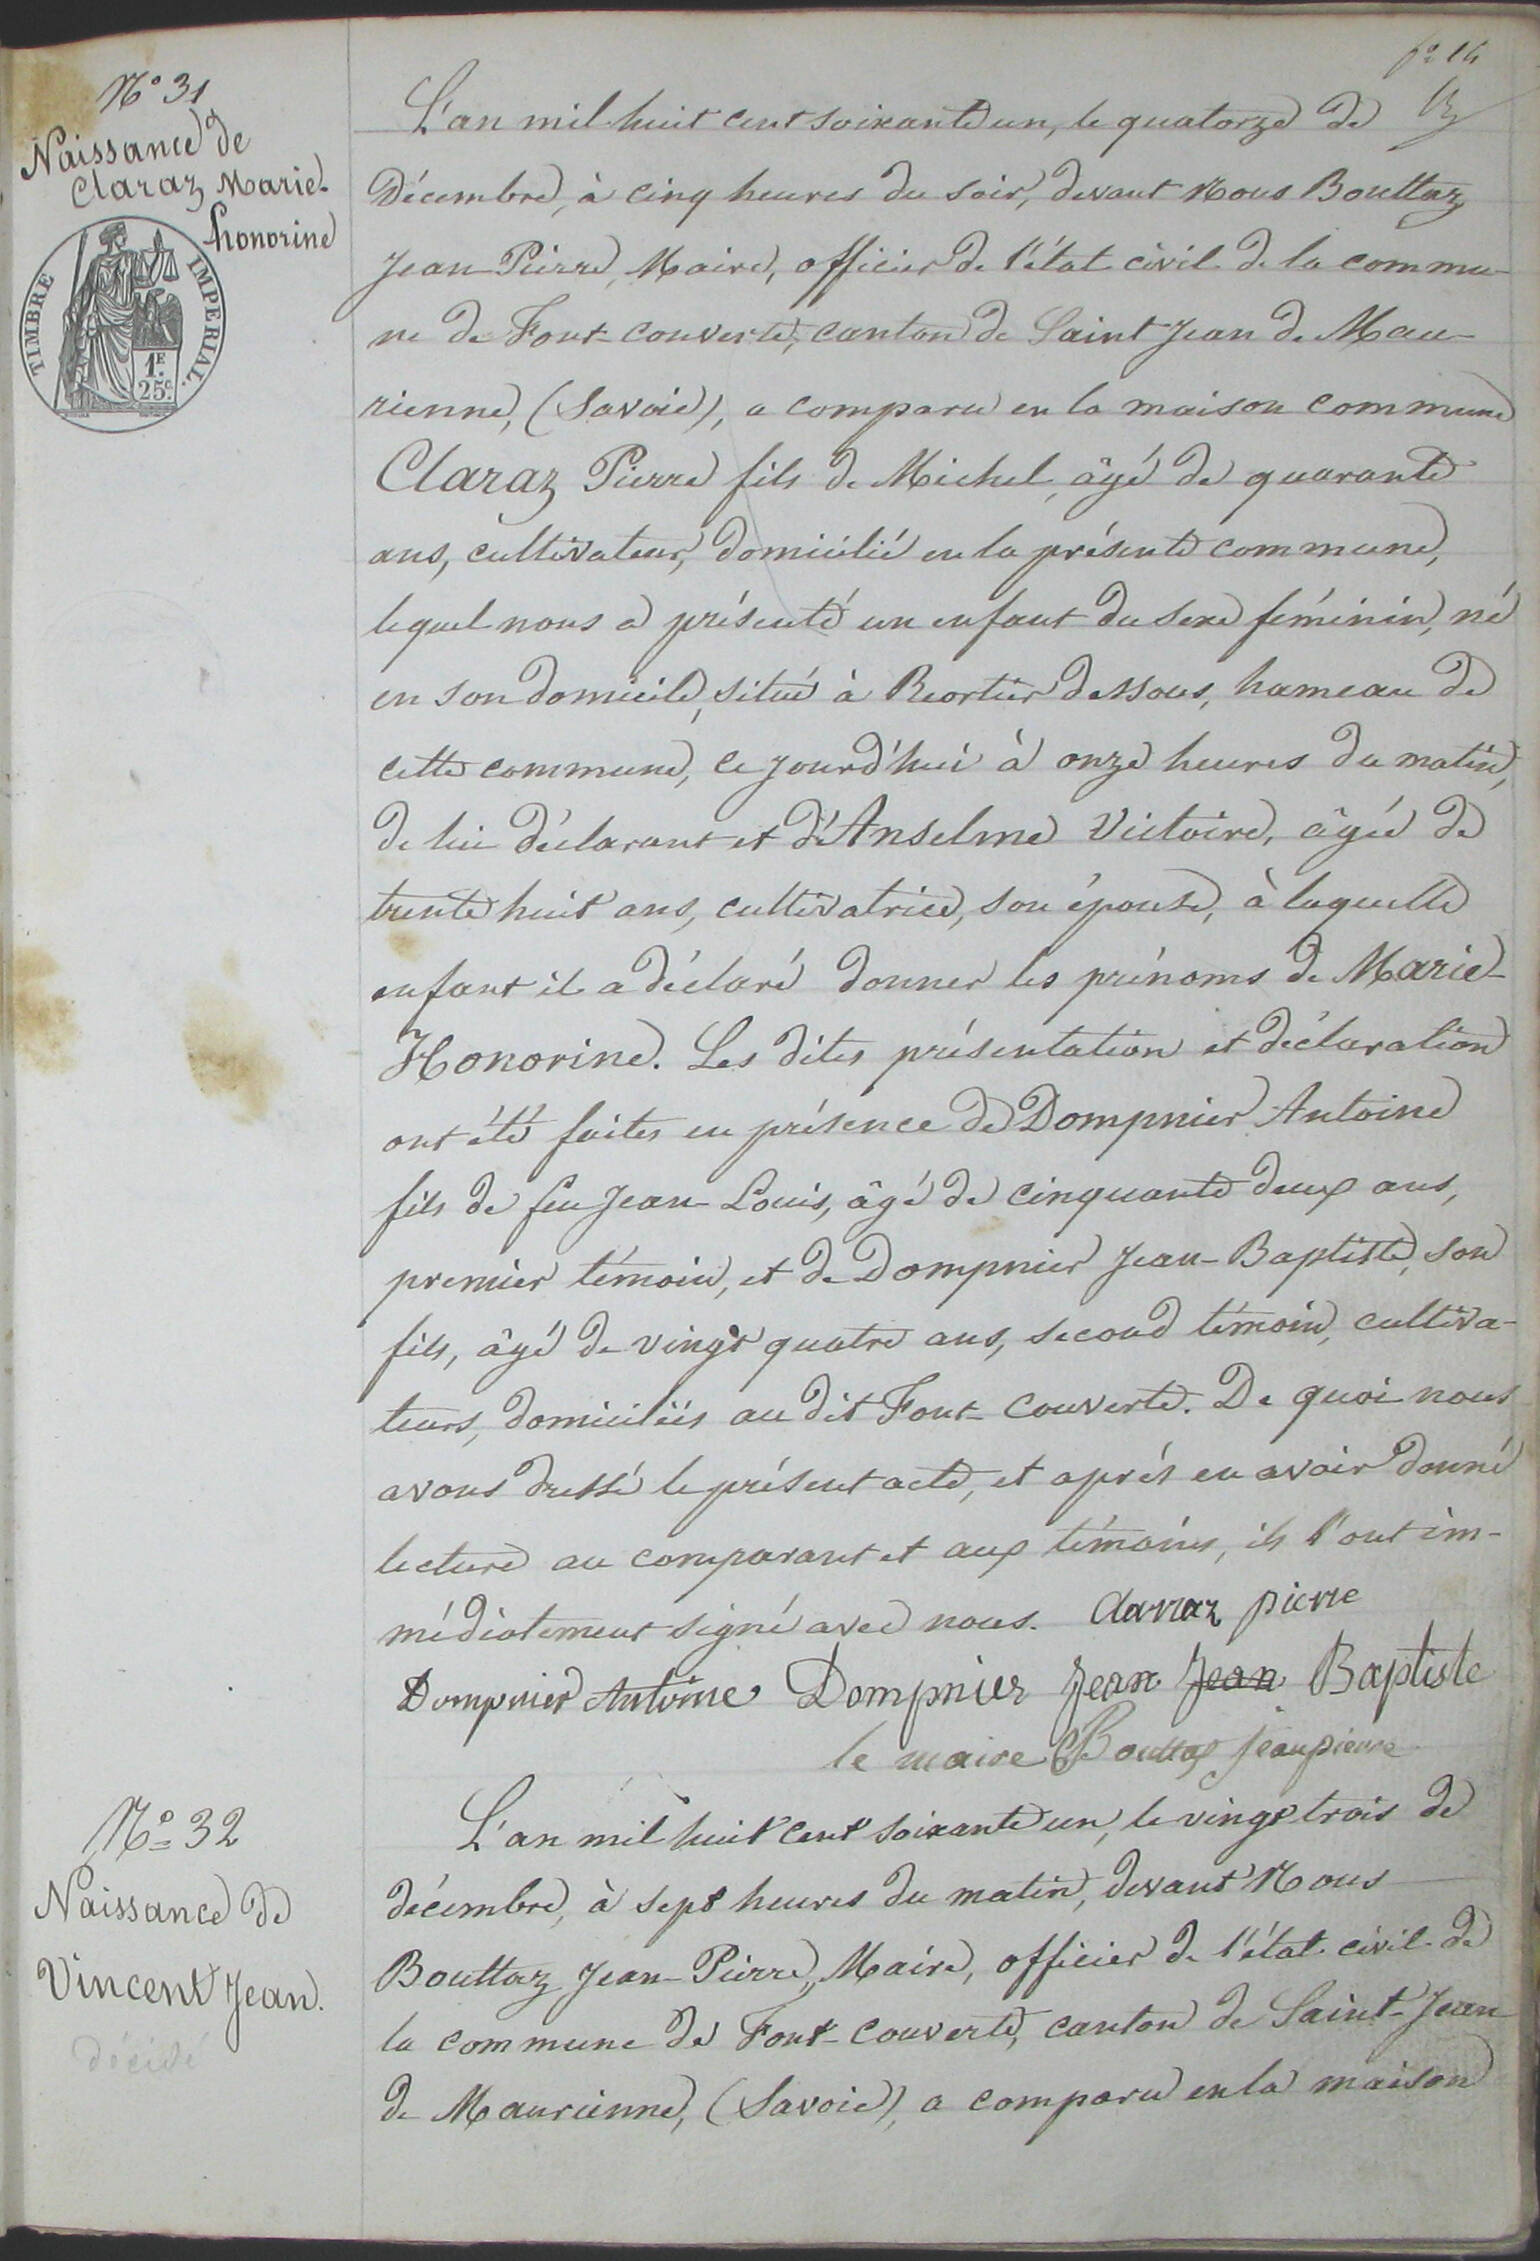 fo 14
No 31
Naissance de
Claraz Marie-
honorine
TIMBRE IMPERIAL.
1F.
25c.
L'an mil huit cent soixante un, le quatorze de
Décembre, à cinq heures du soir, devant Nous Bouttaz
Jean-Pierre, Maire, officier de l'état civil de la commu-
ne de Font-couverte, canton de Saint Jean de Mau-
rienne, (Savoie), a comparu en la maison commune
Claraz Pierre fils de Michel, âgé de quarante
ans, cultivateur, domicilié en la présente commune,
lequel nous a présenté un enfant du sexe féminin, né
en son domicile, situé à Reortier dessous, hameau de
cette commune, ce jourd'hui à onze heures du matin,
de lui déclarant et d'Anselme Victoire, âgée de
trente huit ans, cultivatrice, son épouse, à laquelle
enfant il a déclaré donner les prénoms de Marie-
Honorine. Les dites présentation et déclaration
ont été faites en présence de Dompnier Antoine
fils de feu Jean-Louis, âgé de cinquante deux ans,
premier témoin, et de Dompnier Jean-Baptiste, son
fils, âgé de vingt quatre ans, second témoin, cultiva-
teurs, domiciliés au dit Font-couverte. De quoi nous
avons dressé le présent acte, et après en avoir donné
lecture au comparant et aux témoins, ils l'ont im-
médiatement signé avec nous. Clarraz pierre
Dompnier Antoine Dompnier Jean Jean Baptiste
le maire Bouttaz jeanpierre
No 32
Naissance de
Vincent Jean.
décédé
L'an mil huit cent soixante un, le vingt trois de
décembre, à sept heures du matin, devant Nous
Bouttaz Jean-Pierre, Maire, officier de l'état civil de
la commune de Font-couverte, canton de Saint-Jean
de Maurienne, (Savoie), a comparu en la maison